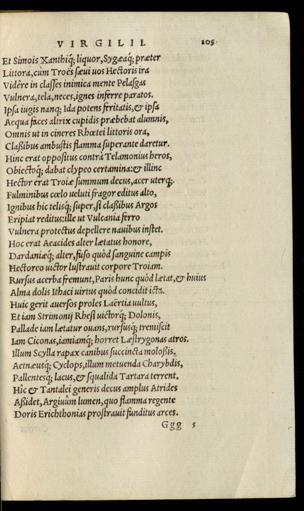 VIRGILII. 205
Et Simois Xanthiq; liquor, Sygæaq; præter
Littora, cum Troës sæui uos Hectoris ira
Vidêre in classes inimica mente Pelasgas
Vulnera, tela, neces, ignes inferre paratos.
Ipsa iugis nanq; Ida potens feritatis, & ipsa
Aequa faces altrix cupidis præbebat alumnis,
Omnis ut in cineres Rhœtei littoris ora,
Classibus ambustis flamma superante daretur.
Hinc erat oppositus contrà Telamonius heros,
Obiectoq; dabat clypeo certamina: & illinc
Hector erat Troiæ summum decus, acer uterq;.
Fulminibus cœlo ueluti fragor editus alto,
Ignibus hic telisq; super, si classibus Argos
Eripiat reditus: ille ut Vulcania ferro
Vulnera protectus depellere nauibus instet.
Hoc erat Aeacides alter lætatus honore,
Dardaniæq; alter, fuso quòd sanguine campis
Hectoreo uictor lustrauit corpore Troiam.
Rursus acerba fremunt, Paris hunc quòd lætat, & huius
Alma dolis Ithaci uirtus quòd concidit icta.
Huic gerit auersos proles Laërtia uultus,
Et iam Strimonij Rhesi uictorq; Dolonis,
Pallade iam lætatur ouans, rursusq; tremiscit
Iam Ciconas, iamiamq; horret Læstrygonas atros.
Illum Scylla rapax canibus succincta molossis,
Aetnæutq; Cyclops, illum metuenda Charybdis,
Pallentesq; lacus, & squalida Tartara terrent.
Hic & Tantalei generis decus amplus Atrides
Assidet, Argiuûm lumen, quo flamma regente
Doris Erichthonias prostrauit funditus arces.
Ggg 5